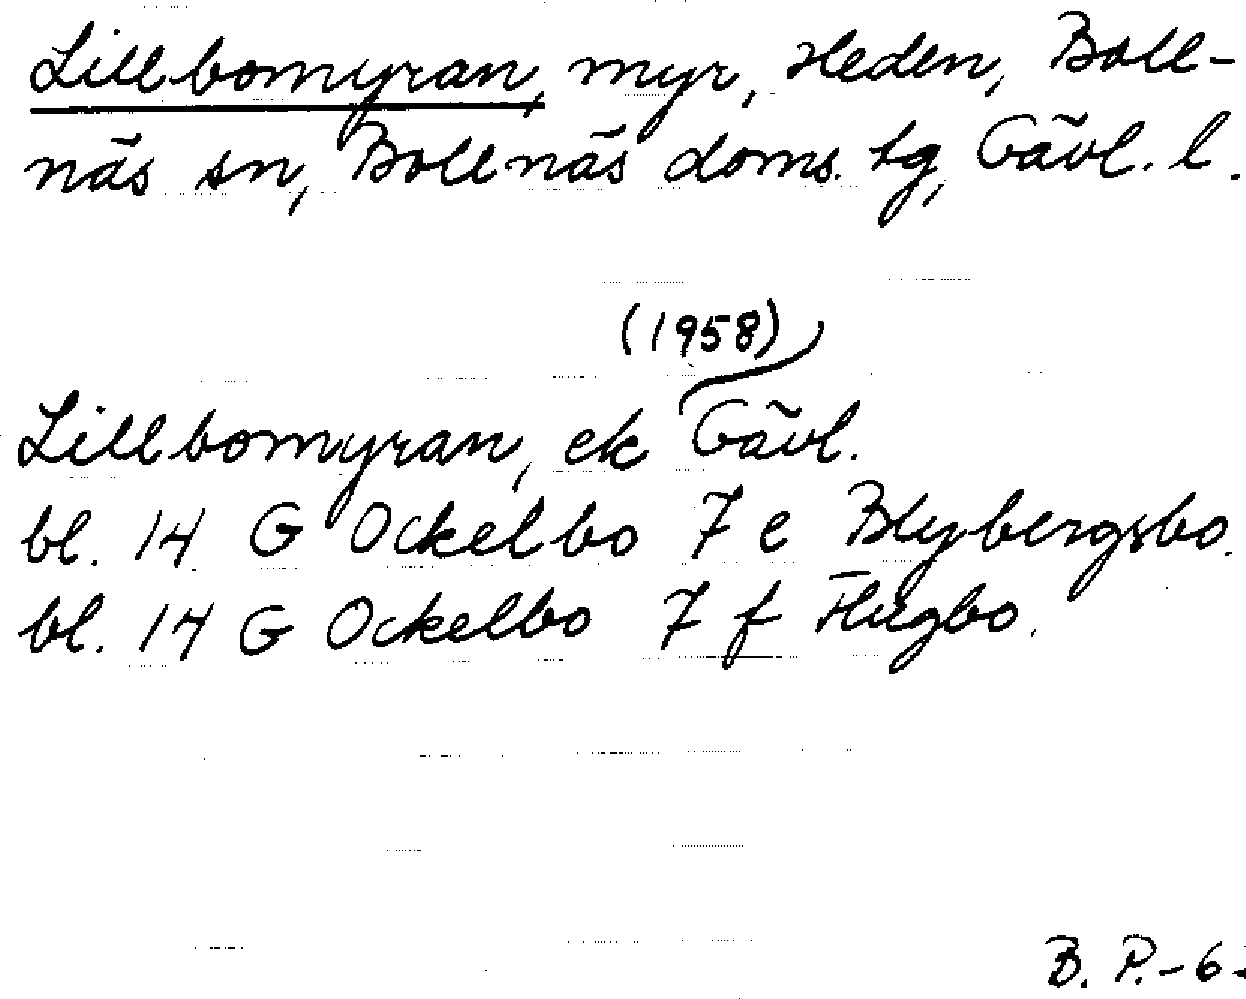 Lillbomyran, myr, Heden, Boll-
näs sn, Bollnäs doms. tg, Gävl. l.
(1958)
Lillbomyran, ek Gävl.
bl. 14 G Ockelbo 7 e Blybergsbo.
bl. 14 G Ockelbo 7 f Flugbo.
B. P. -6